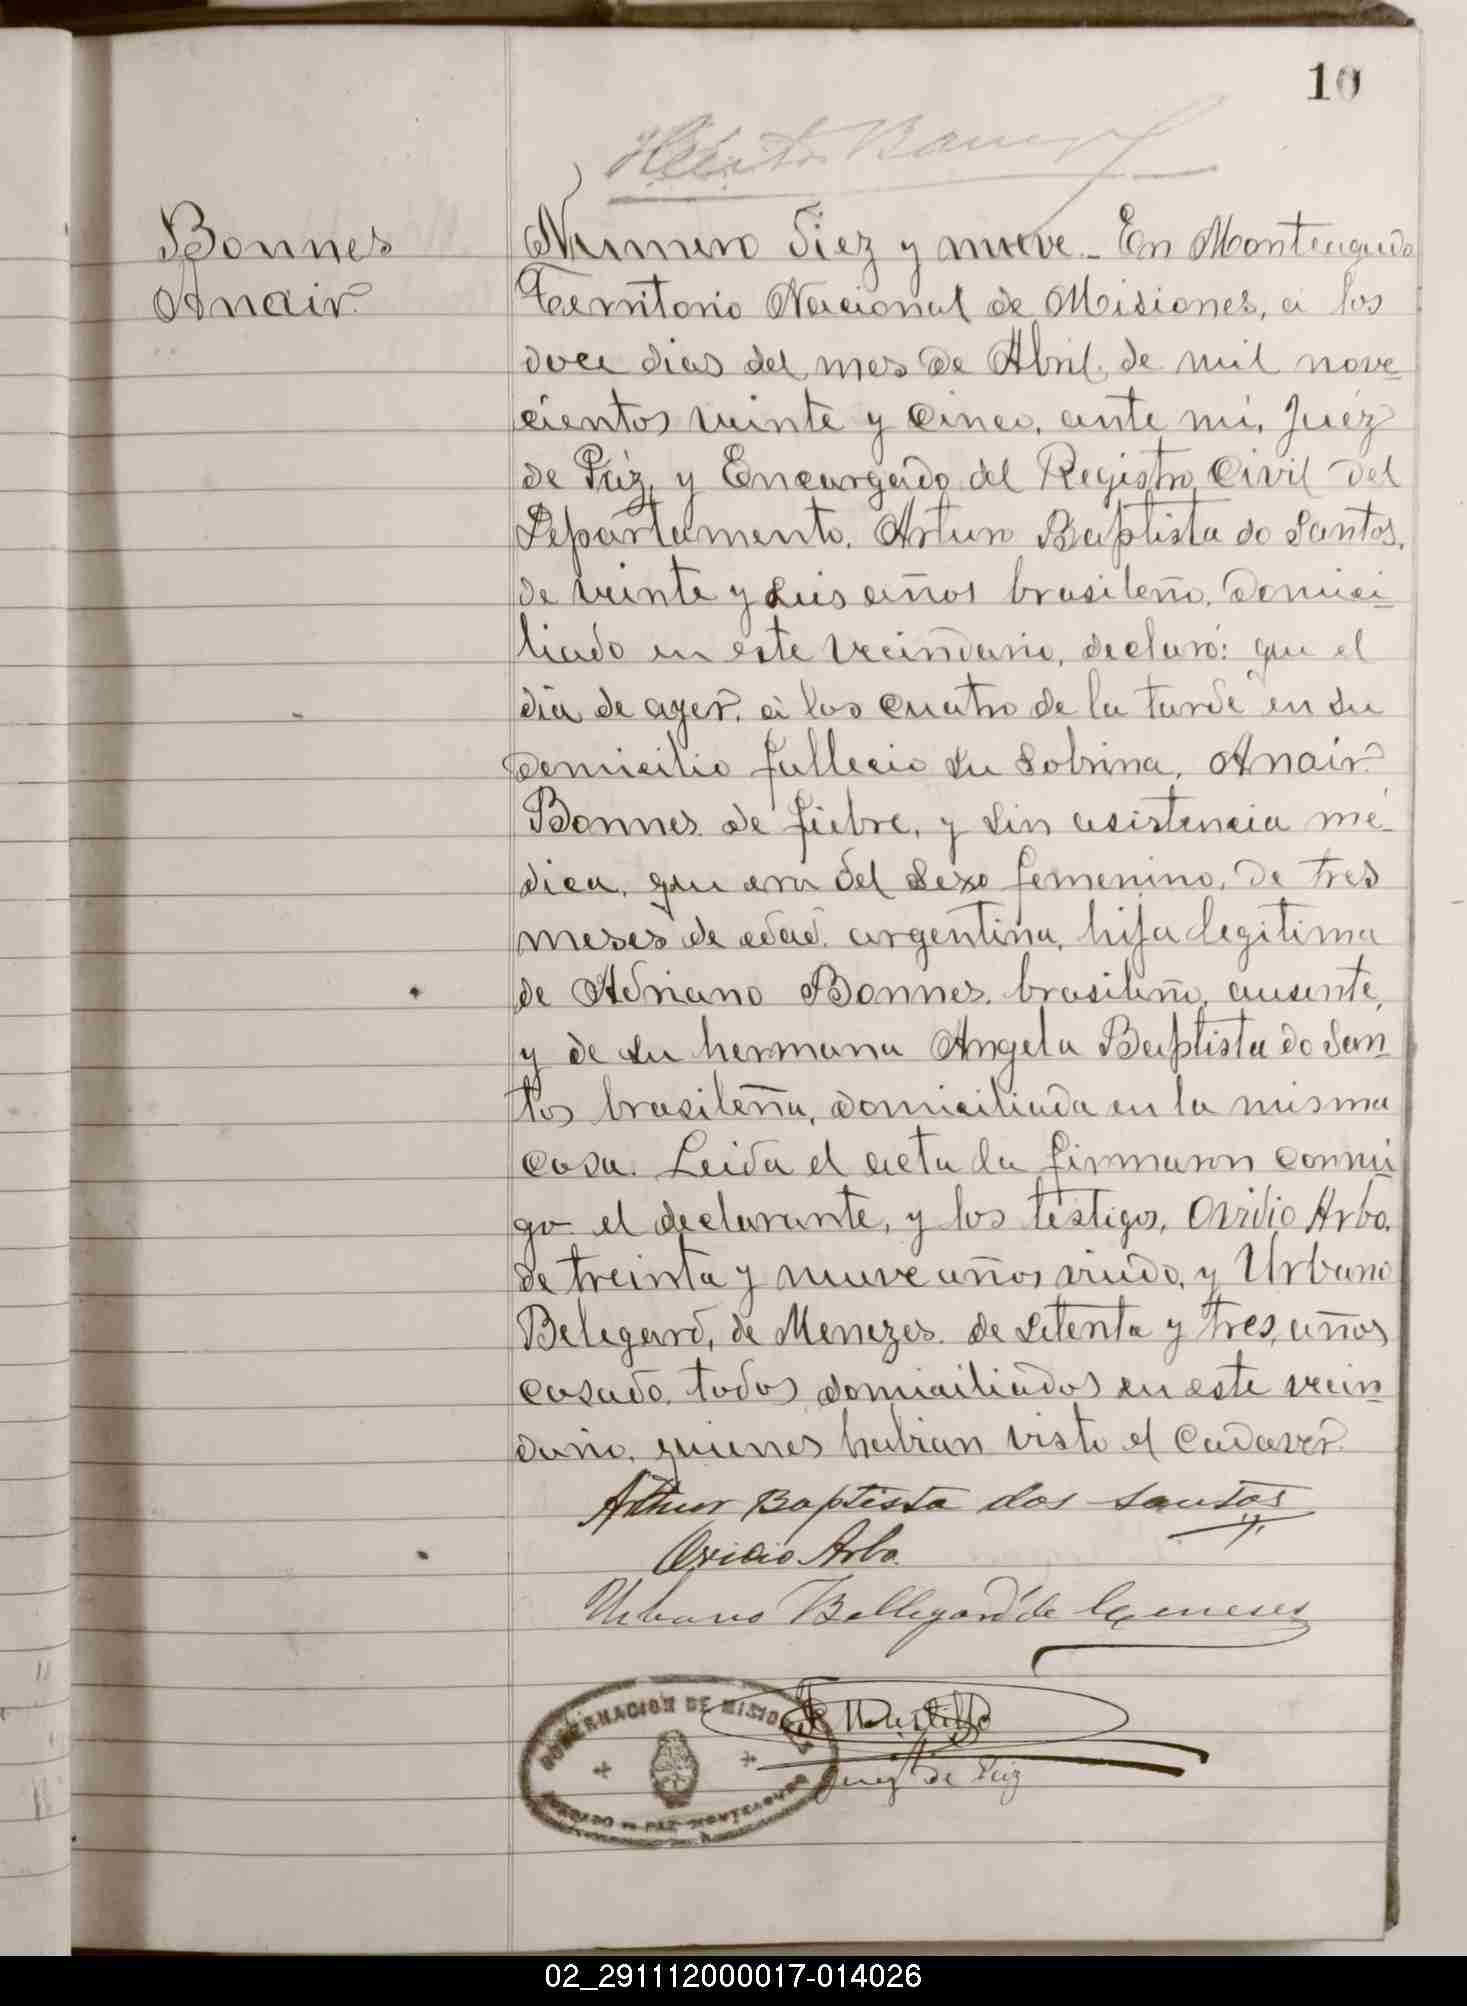 10
Bonnes
Anair.
Numero Diez y nueve.- En Monteagudo
Territorio Nacional de Misiones, á los
doce dias del mes de Abril, de mil nove-
cientos veinte y cinco, ante mi, Juez
de Páz, y Encargado del Registro Civil del
Departamento, Arturo Baptista do Santos,
de veinte y seis años brasileño, domici-
liado en este vecindario, declaró: que el
dia de ayer, á las cuatro de la tarde en su
domicilio fallecio su sobrina, Anair
Bonnes de fiebre, y sin asistencia mé-
dica, que era del sexo femenino, de tres
meses de edad, argentina, hija legitima
de Adriano Bonnes, brasileño, ausente,
y de su hermana Angela Baptista do San-
tos brasileña, domiciliada en la misma
casa. Leida el acta la firmaron conmi
go el declarante, y los testigos, Ovidio Arbo,
de treinta y nueve años viudo, y Urbano
Belegard, de Menezes de setenta y tres, años
casado, todos domiciliados en este vecin-
dario, quienes habian visto el cadaver.
Arthur Baptista dos Santos
Ovidio Arbo.
Urbano Bellegard de Meneses
GOBERNACION DE MISIONES
JUZGADO DE PAZ MONTEAGUDO
Juez de Paz
02_291112000017-014026